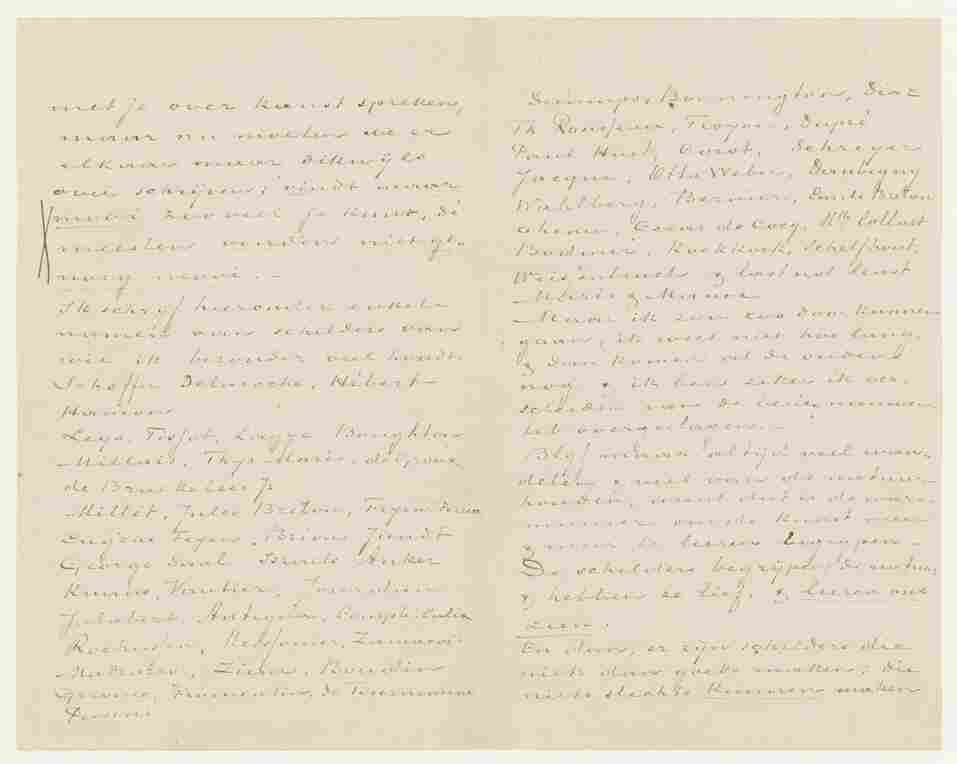 met je over kunst spreken,
maar nu moeten we er
elkaar maar dikwijls
over schrijven; vindt maar
mooi zooveel je kunt, de
meesten vinden niet ge-
noeg mooi. –
Ik schrijf hieronder enkele
namen van schilders van
wie ik bizonder veel houdt.
Scheffer Delaroche, Hébert
Hamon
Leys, Tissot, Lagye Boughton
Millais, Thijs Maris, de Groux
de Braekeleer Jr
Millet, Jules Breton, Feyen-Perrin
Eugène Feyen, Brion, Jundt
George Saal Israels Anker
Knaus, Vautier, Jourdan
Jalabert, Antigna, Compte-Calix
Rochussen, Meissonier, Zamacois
Madrazo, Ziem, Boudin
Gérôme, Fromentin, de Tournemine
Pasini
Bonnington, Diaz
Th Rousseau, Troyon, Dupré
Paul Huet, Corot, Schreyer
Jacque, Otto Weber, Daubigny
Wahlberg, Bernier, Emile Breton
Chenu, César de Cocq, Mlle Collart
Bodmer, Koekkoek, Schelfhout,
Weissenbruch & last not least
Maris & Mauve
Maar ik zou zoo door kunnen
gaan, ik weet niet hoe lang,
& dan komen al de ouden
nog & ik ben zeker ik ver-
scheiden van de beste nieuwe
heb overgeslagen. –
Blijf maar altijd veel wan-
delen & veel van de natuur
houden, want dat is de ware
manier om de kunst meer
& meer te leeren begrijpen.
De schilders begrijpen de natuur
& hebben ze lief, & leeren ons
zien.
En dan, er zijn schilders die
niets dan goeds maken, die
niets slechts kunnen maken